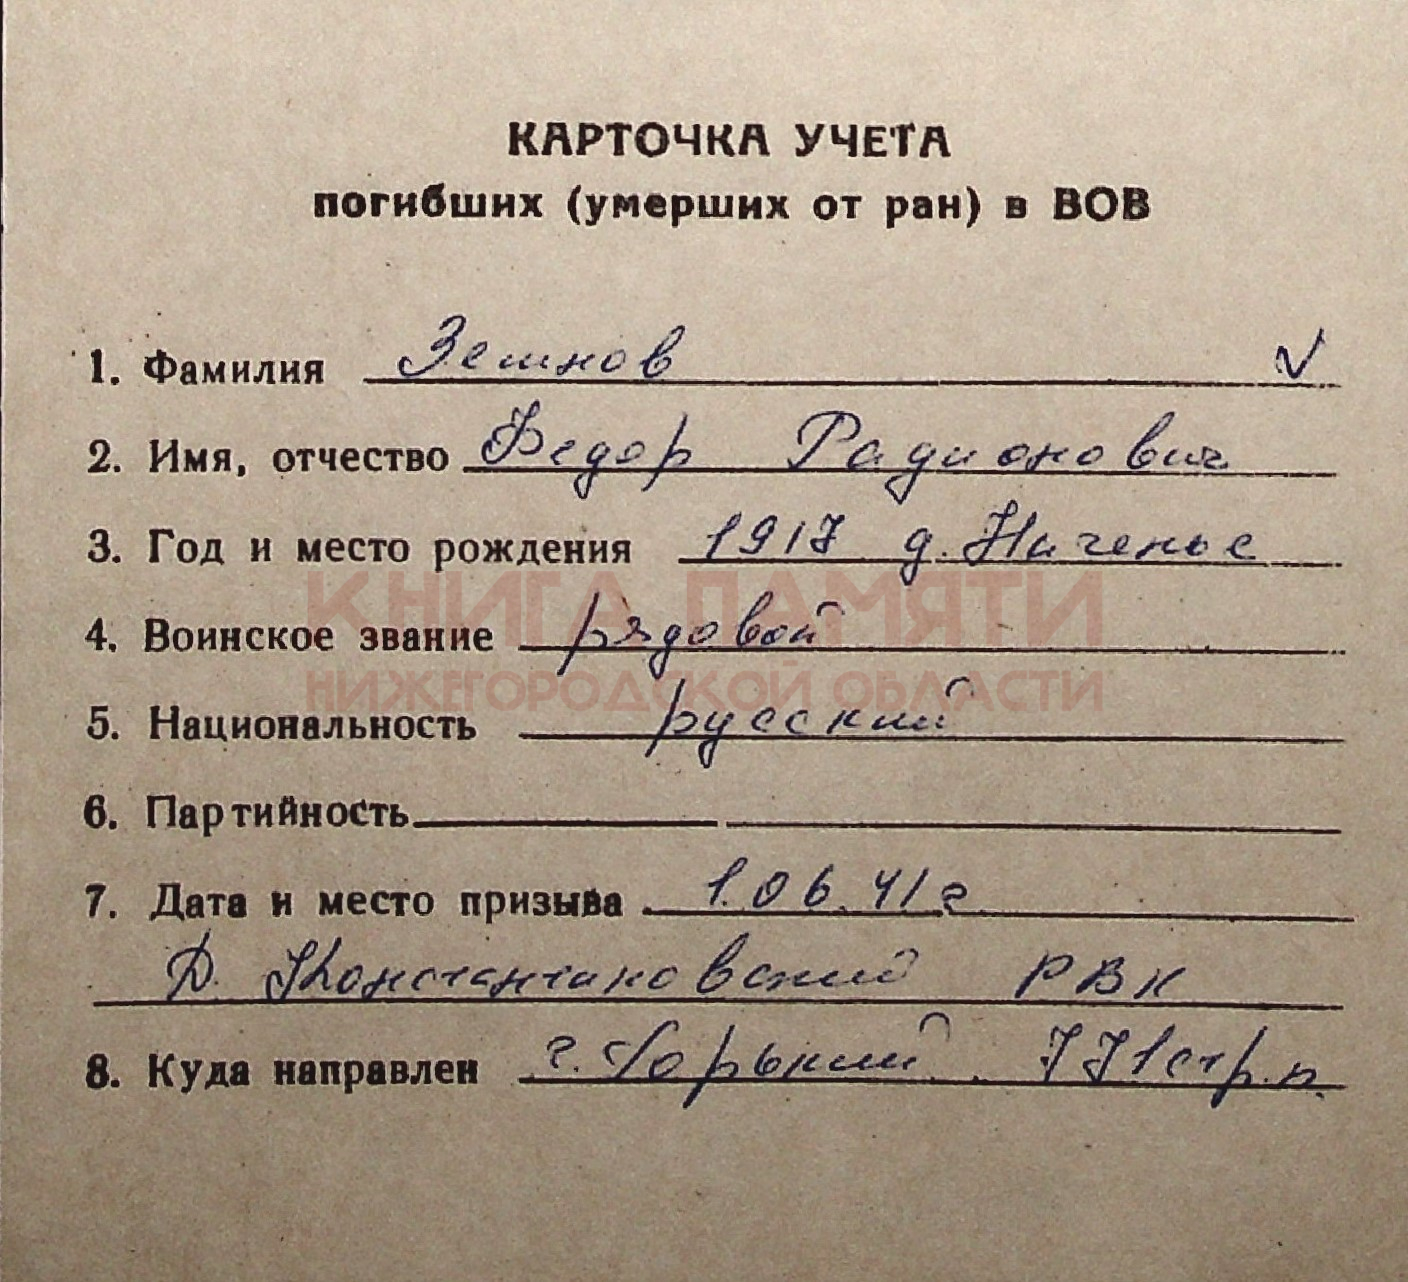 КАРТОЧКА УЧЕТА
погибших (умерших от ран) в ВОВ
1. Фамилия Земнов
2. Имя, отчество Федор Радионович
3. Год и место рождения 1917 д. Ниченье
КНИГА ПАМЯТИ
4. Воинское звание рядовой
НИЖЕГОРОДСКОЙ ОБЛАСТИ
5. Национальность русский
6. Партийность
7. Дата и место призыва 1.06.41 г
Д. Константиновский РВК
8. Куда направлен г. Горький 771 стр. п.